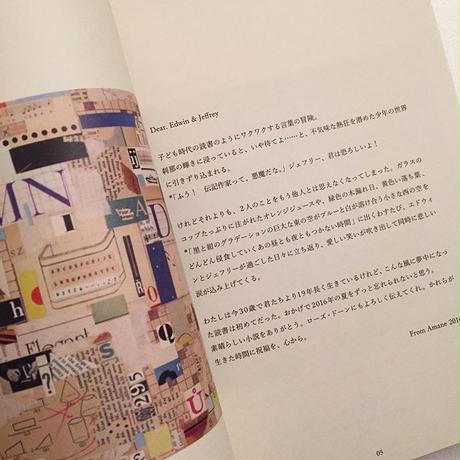 Dear. Edwin & Jeffrey
子ども時代の読書のようにワクワクする言葉の冒険。
刹那の輝きに浸っていると、いや待てよ……と、不気味な熱狂を潜めた少年の世界
に引きずり込まれる。
*「ふう！　伝記作家って、悪魔だな。」ジェフリー、君は恐ろしいよ！
けれどそれよりも、2人のことをもう他人とは思えなくなってしまった。ガラスの
コップたっぷりに注がれたオレンジジュースや、緑色の木漏れ日、黄色い落ち葉、
*「黒と紺のグラデーションの巨大な東の空がブルーと白が溶け合う小さな西の空を
どんどん侵食していくあの昼とも夜ともつかない時間」に出くわすたび、エドウィ
ンとジェフリーが過ごした日々に立ち返り、愛しい笑いが吹き出して同時に悲しい
涙が込み上げてくる。
わたしは今30歳で君たちより19年長く生きているけれど、こんな風に夢中になっ
た読書は初めてだった。おかげで2016年の夏をずっと忘れられないと思う。
素晴らしい小説をありがとう。ローズ・ドーンにもよろしく伝えてくれ。かれらが
生きた時間に祝福を、心から。
From Amane 201
05
MN
A
D
h
295
Ů
Elegant